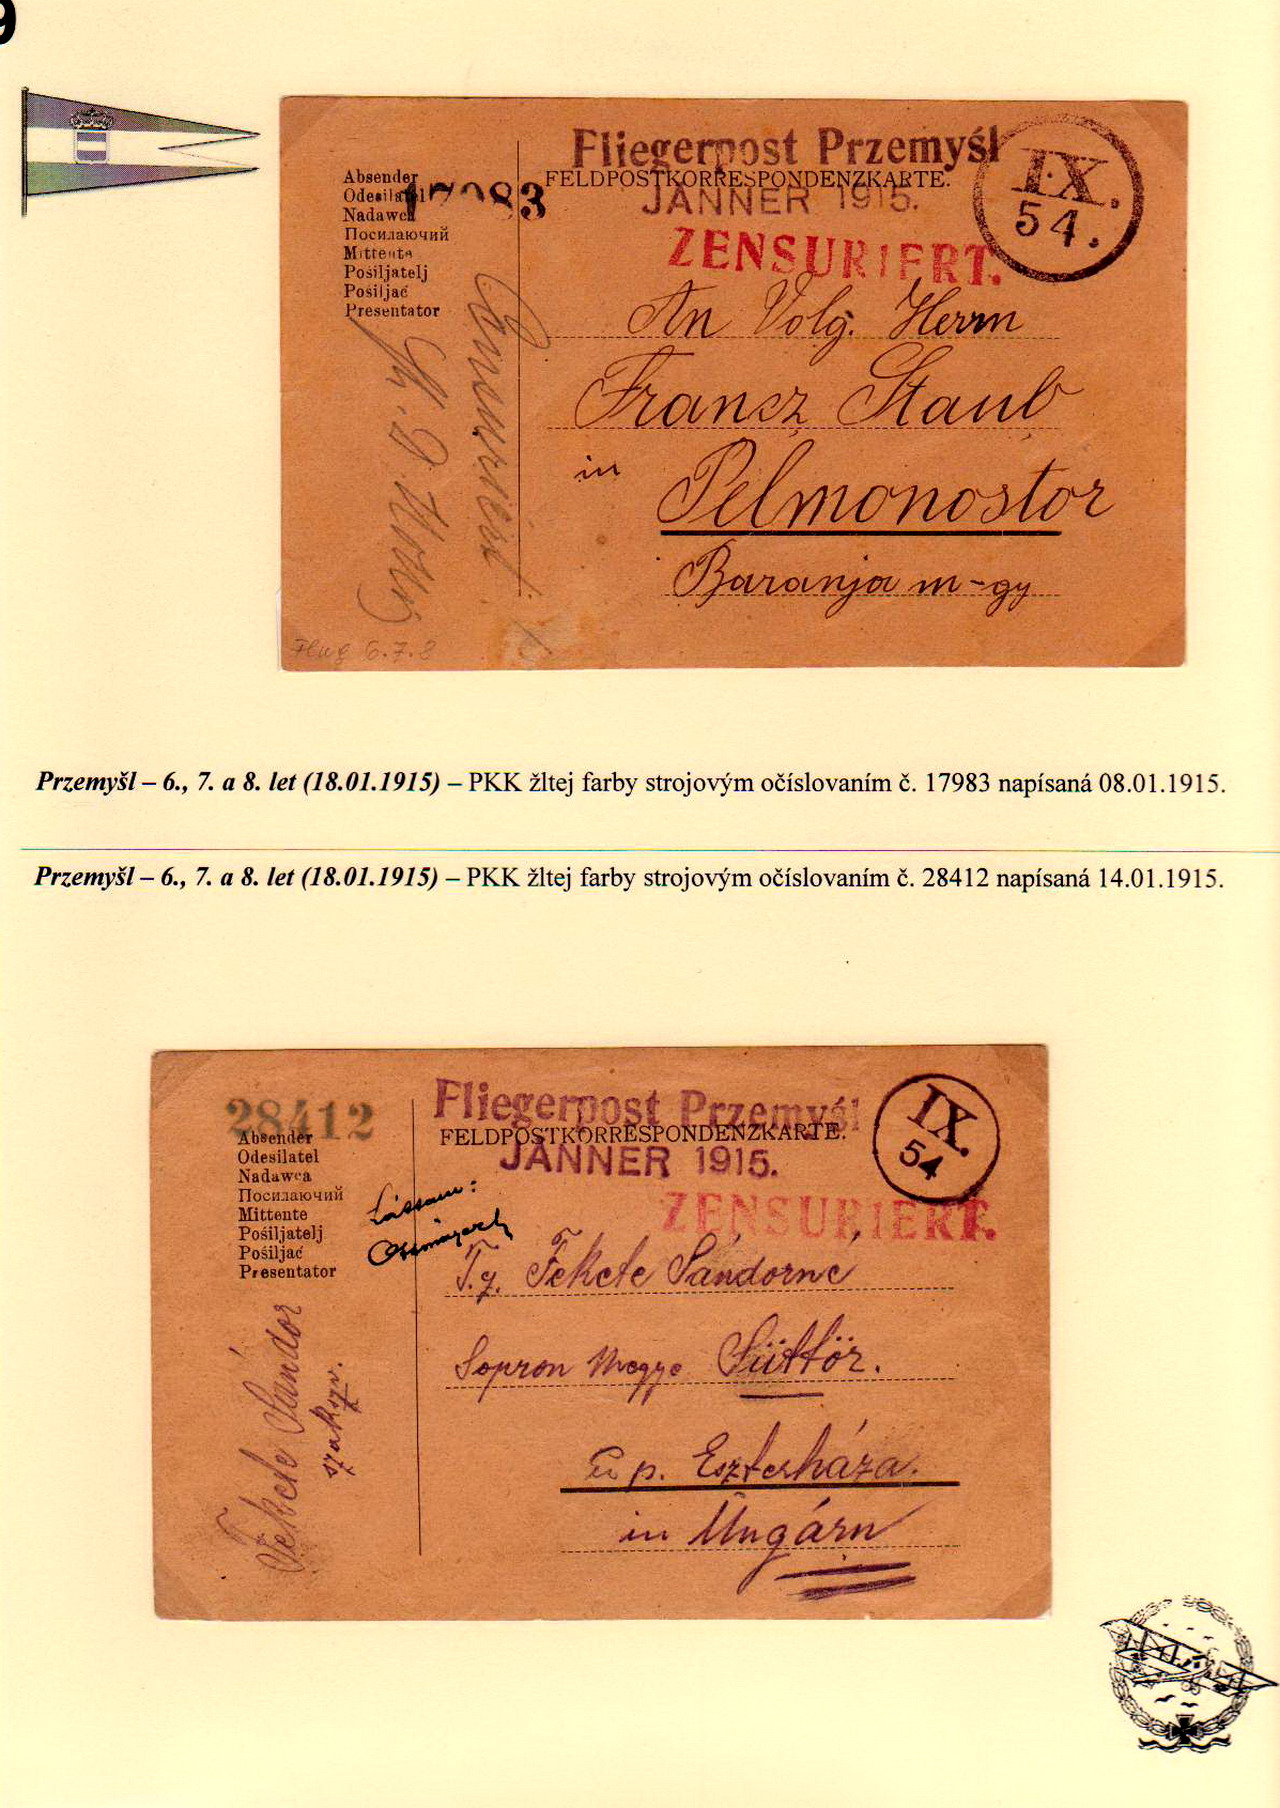 9
Fliegerpost Przemyśl
FELDPOSTKORRESPONDENZKARTE.
JÄNNER 1915.
ZENSURIERT.
IX.
54.
17983
Absender
Odesilatel
Nadawca
Посилаючий
Mittente
Pošiljatelj
Pošiljač
Presentator
An Volg. Herrn
Fransz Staub
in
Pelmonostor
Baranja m-gy
Flug 6.7.8
Przemyšl – 6., 7. a 8. let (18.01.1915) – PKK žltej farby strojovým očíslovaním č. 17983 napísaná 08.01.1915.
Przemyšl – 6., 7. a 8. let (18.01.1915) – PKK žltej farby strojovým očíslovaním č. 28412 napísaná 14.01.1915.
28412
Fliegerpost Przemyśl
FELDPOSTKORRESPONDENZKARTE.
JÄNNER 1915.
ZENSURIERT.
IX.
54
Absender
Odesilatel
Nadawca
Посилаючий
Mittente
Pošiljatelj
Pošiljač
Presentator
Láttam:
T.z. Fekete Sándorné
Sopron Megye Süttör.
u p. Eszterháza.
in Ungarn
Fekete Sándor
szakszv.